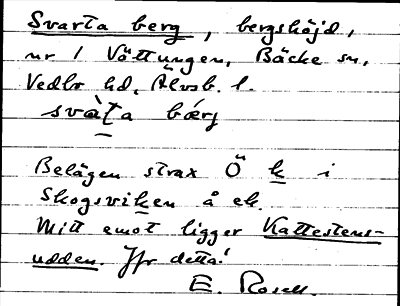 Svarta berg, bergshöjd,
nr 1 Vättungen, Bäcke sn,
Vedbo hd, Älvsb. l.
svàt̲a bǽrj
Belägen strax Ö k i
Skogsviken å ek.
Mitt emot ligger Kattestens-
udden. Jfr detta!
E. Rosell.